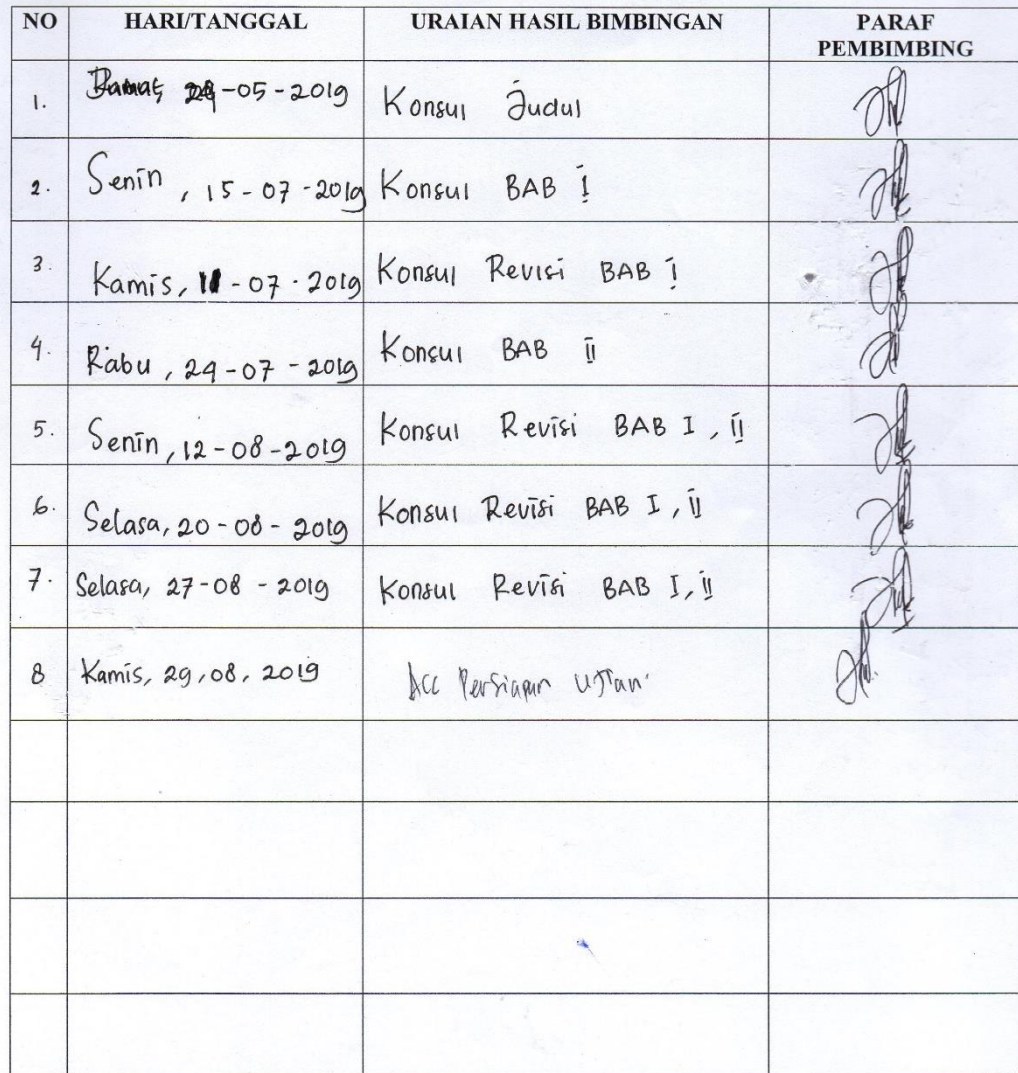 NO HARI/TANGGAL URAIAN HASIL BIMBINGAN PARAF
PEMBIMBING
1. -05-2019 Konsul Judul
2. Senin, 15-07-2019 Konsul BAB I
3. Kamis, -07-2019 Konsul Revisi BAB I
4. Rabu, 24-07-2019 Konsul BAB II
5. Senin, 12-08-2019 Konsul Revisi BAB I, II
6. Selasa, 20-08-2019 Konsul Revisi BAB I, II
7. Selasa, 27-08-2019 Konsul Revisi BAB I, II
8 Kamis, 29,08,2019 Acc Persiapan Ujian